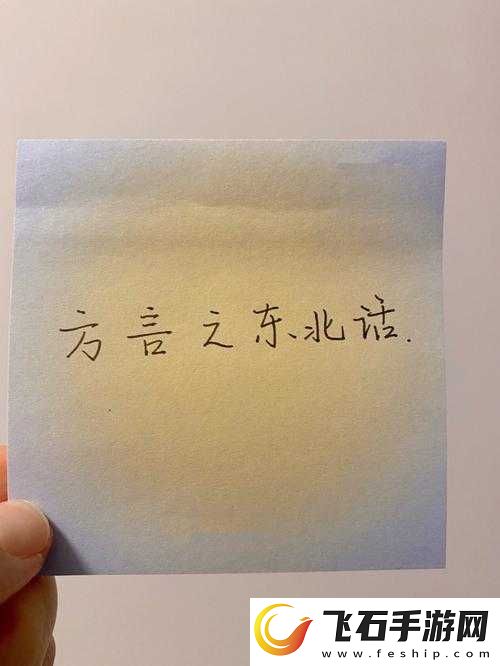 方言之东北话.
飞石手游网
www.feship.com